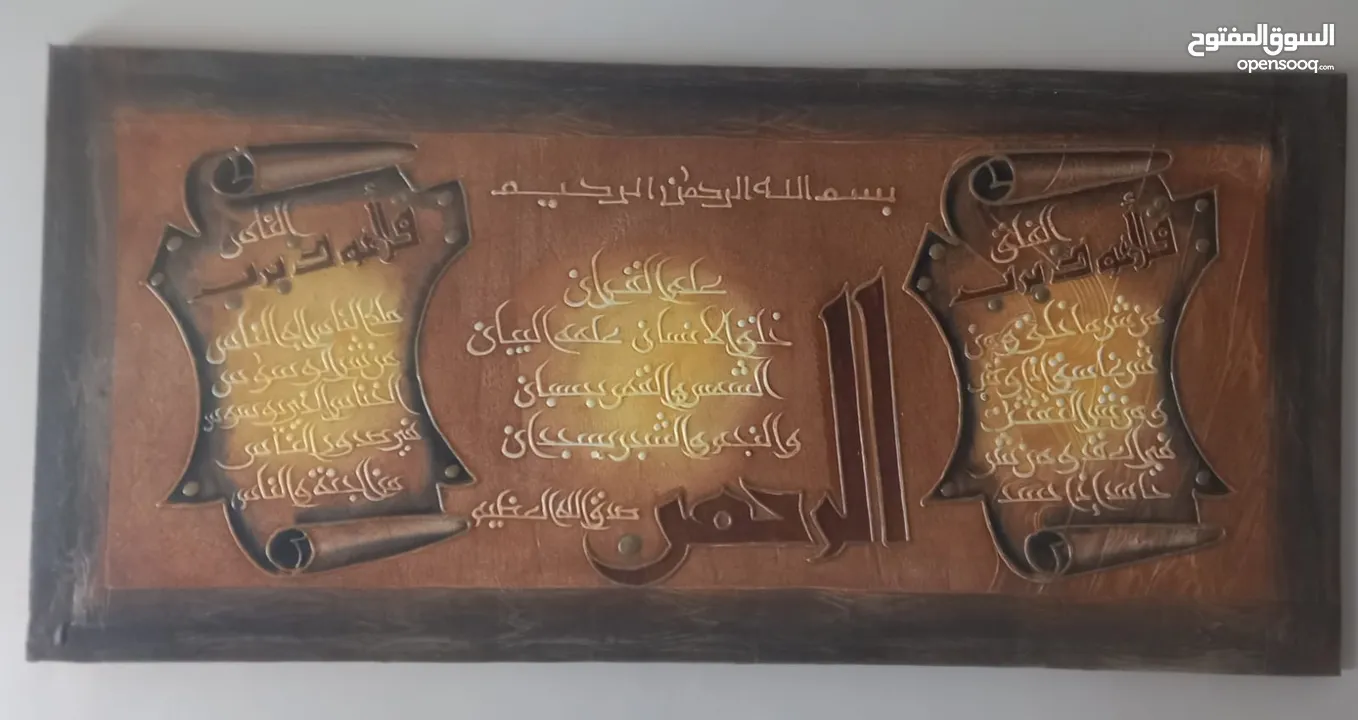 السوق المفتوح
opensooq.com
بسم الله الرحمن الرحيم
قل أعوذ برب
الفلق
من شر ما خلق ومن
شر غاسق إذا وقب
ومن شر النفثت
في العقد ومن شر
حاسد إذا حسد
الرحمن
علم القرءان
خلق الانسان علمه البيان
الشمس والقمر بحسبان
والنجم والشجر يسجدان
صدق الله العظيم
قل أعوذ برب
الناس
ملك الناس اله الناس
من شر الوسواس
الخناس الذي يوسوس
في صدور الناس
من الجنة والناس